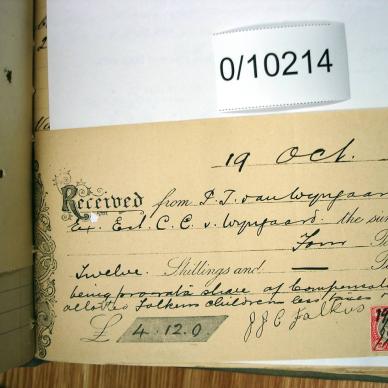 0/10214
19 Oct.
Received from P. J. van Wyngaar
Ex. Est. C. C. v. Wyngaard. the su
Four
Twelve. Shillings and —
being prorata share of Compensat
allotted Falkens children less taxes
£ 4.12.0
J J C Falkus